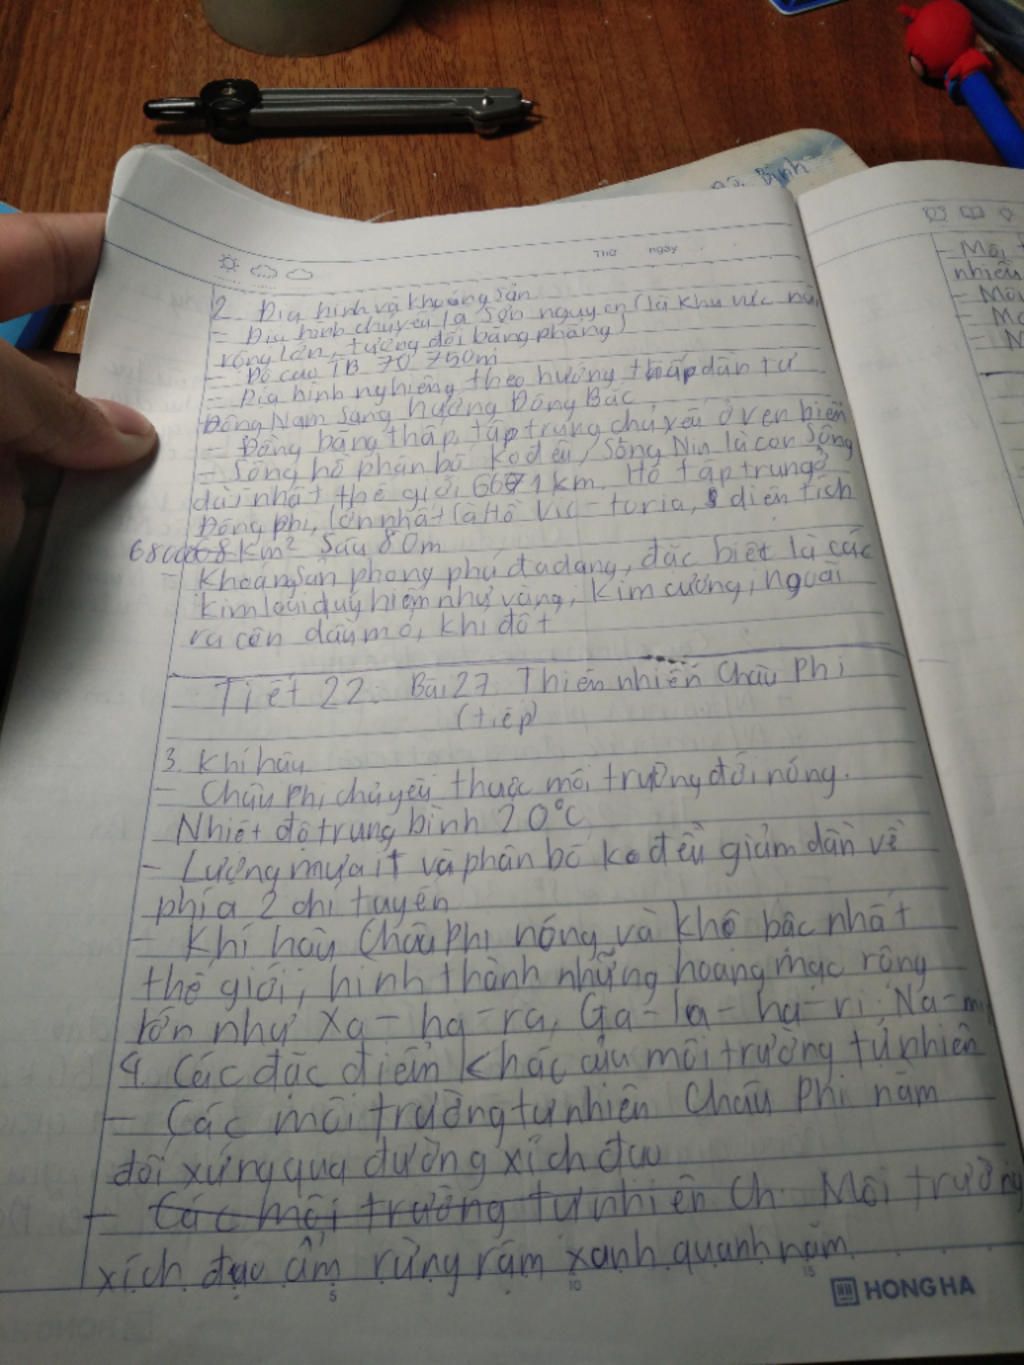 Bình
Thứ ngày
2. Địa hình và khoáng sản
- Địa hình chủ yếu là sơn nguyên (là khu vực núi
rộng lớn, tương đối bằng phẳng)
- Độ cao TB 70 750m
- Địa hình nghiêng theo hướng thấp dần từ
Đông Nam sang hướng Đông Bắc
- Đồng bằng thấp, tập trung chủ yếu ở ven biển
- Sông hồ phân bố ko đều, Sông Nin là con sông
dài nhất thế giới 6671km. Hồ tập trung ở
Đông phi, lớn nhất là Hồ Vic-toria, diện tích
68000 km² sâu 80m
- Khoáng sản phong phú đa dạng, đặc biệt là các
kim loại quý hiếm như vàng, kim cương, ngoài
ra còn dầu mỏ, khí đốt
Tiết 22. Bài 27 Thiên nhiên Châu Phi
(tiếp)
3. Khí hậu
- Châu Phi chủ yếu thuộc môi trường đới nóng.
Nhiệt độ trung bình 20°C
- Lượng mưa ít và phân bố ko đều giảm dần về
phía 2 chí tuyến
- Khí hậu Châu Phi nóng và khô bậc nhất
thế giới, hình thành những hoang mạc rộng
lớn như Xa-ha-ra, Ga-la-ha-ri, Na-mi
4. Các đặc điểm khác của môi trường tự nhiên
- Các môi trường tự nhiên Châu Phi nằm
đối xứng qua đường xích đạo
- Các môi trường tự nhiên Ch. Môi trường
xích đạo ẩm rừng rậm xanh quanh năm
5 10 15
HONG HA
- Môi
nhiều
- Môi
- Mo